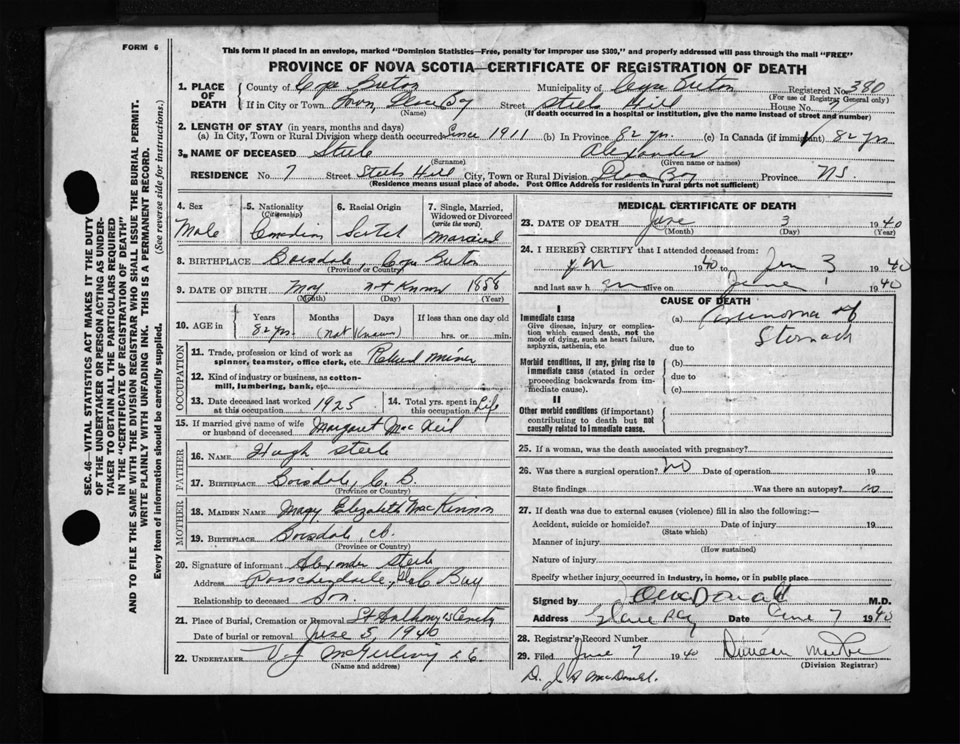 FORM 6
This form if placed in an envelope, marked "Dominion Statistics—Free, penalty for improper use $300," and properly addressed will pass through the mail "FREE"
PROVINCE OF NOVA SCOTIA—CERTIFICATE OF REGISTRATION OF DEATH
SEC. 46—VITAL STATISTICS ACT MAKES IT THE DUTY
OF THE UNDERTAKER OR PERSON ACTING AS UNDER-
TAKER TO OBTAIN ALL THE PARTICULARS REQUIRED
IN THE "CERTIFICATE OF REGISTRATION OF DEATH"
AND TO FILE THE SAME WITH THE DIVISION REGISTRAR WHO SHALL ISSUE THE BURIAL PERMIT.
WRITE PLAINLY WITH UNFADING INK. THIS IS A PERMANENT RECORD.
Every item of information should be carefully supplied. (See reverse side for instructions.)
1. PLACE OF DEATH County of Cape Breton Municipality of Cape Breton Registered No. 380
(For use of Registrar General only)
If in City or Town Town, Glace Bay Street Steels Hill House No. 7
(Name) (If death occurred in a hospital or institution, give the name instead of street and number)
2. LENGTH OF STAY (in years, months and days)
(a) In City, Town or Rural Division where death occurred Since 1911 (b) In Province 82 yrs. (c) In Canada (if immigrant) 82 yrs
3. NAME OF DECEASED Steele Alexander
(Surname) (Given name or names)
RESIDENCE No. 7 Street Steels Hill City, Town or Rural Division Glace Bay Province N.S.
(Residence means usual place of abode. Post Office Address for residents in rural parts not sufficient)
4. Sex 5. Nationality (Citizenship) 6. Racial Origin 7. Single, Married, Widowed or Divorced (write the word)
Male Canadian Scotch Married
8. BIRTHPLACE Boisdale, Cape Breton
(Province or Country)
9. DATE OF BIRTH May not Known 1858
(Month) (Day) (Year)
10. AGE in Years Months Days If less than one day old
82 yrs. (not Known) hrs. or min.
OCCUPATION
11. Trade, profession or kind of work as spinner, teamster, office clerk, etc. Retired Miner
12. Kind of industry or business, as cotton-mill, lumbering, bank, etc.
13. Date deceased last worked at this occupation 1925 14. Total yrs. spent in this occupation Life
15. If married give name of wife or husband of deceased Margaret MacNeil
FATHER
16. NAME Hugh Steele
17. BIRTHPLACE Boisdale, C.B.
(Province or Country)
MOTHER
18. MAIDEN NAME Mary Elizabeth MacKinnon
19. BIRTHPLACE Boisdale, C.B.
(Province or Country)
20. Signature of informant Alexander Steele
Address Passchendaele, Glace Bay
Relationship to deceased Son.
21. Place of Burial, Cremation or Removal St Anthony's
Date of burial or removal June 5, 1940
22. UNDERTAKER V. J.
(Name and address)
MEDICAL CERTIFICATE OF DEATH
23. DATE OF DEATH June 3 1940
(Month) (Day) (Year)
24. I HEREBY CERTIFY that I attended deceased from:
1940 to June 3 1940
and last saw h im alive on June 1 1940
CAUSE OF DEATH
I
Immediate cause
Give disease, injury or complication which caused death, not the mode of dying, such as heart failure, asphyxia, asthenia, etc.
(a) Carcinoma of
Stomach
due to
Morbid conditions, if any, giving rise to immediate cause (stated in order proceeding backwards from immediate cause)
(b)
due to
(c)
II
Other morbid conditions (if important) contributing to death but not causally related to immediate cause.
25. If a woman, was the death associated with pregnancy?
26. Was there a surgical operation? No Date of operation 19
State findings Was there an autopsy? no
27. If death was due to external causes (violence) fill in also the following:—
Accident, suicide or homicide? Date of injury 19
(State which)
Manner of injury
(How sustained)
Nature of injury
Specify whether injury occurred in industry, in home, or in public place
Signed by MacDonald M.D.
Address Glace Bay Date June 7 1940
28. Registrar's Record Number
29. Filed June 7 1940 Duncan
(Division Registrar)
D. J. A MacDonald.